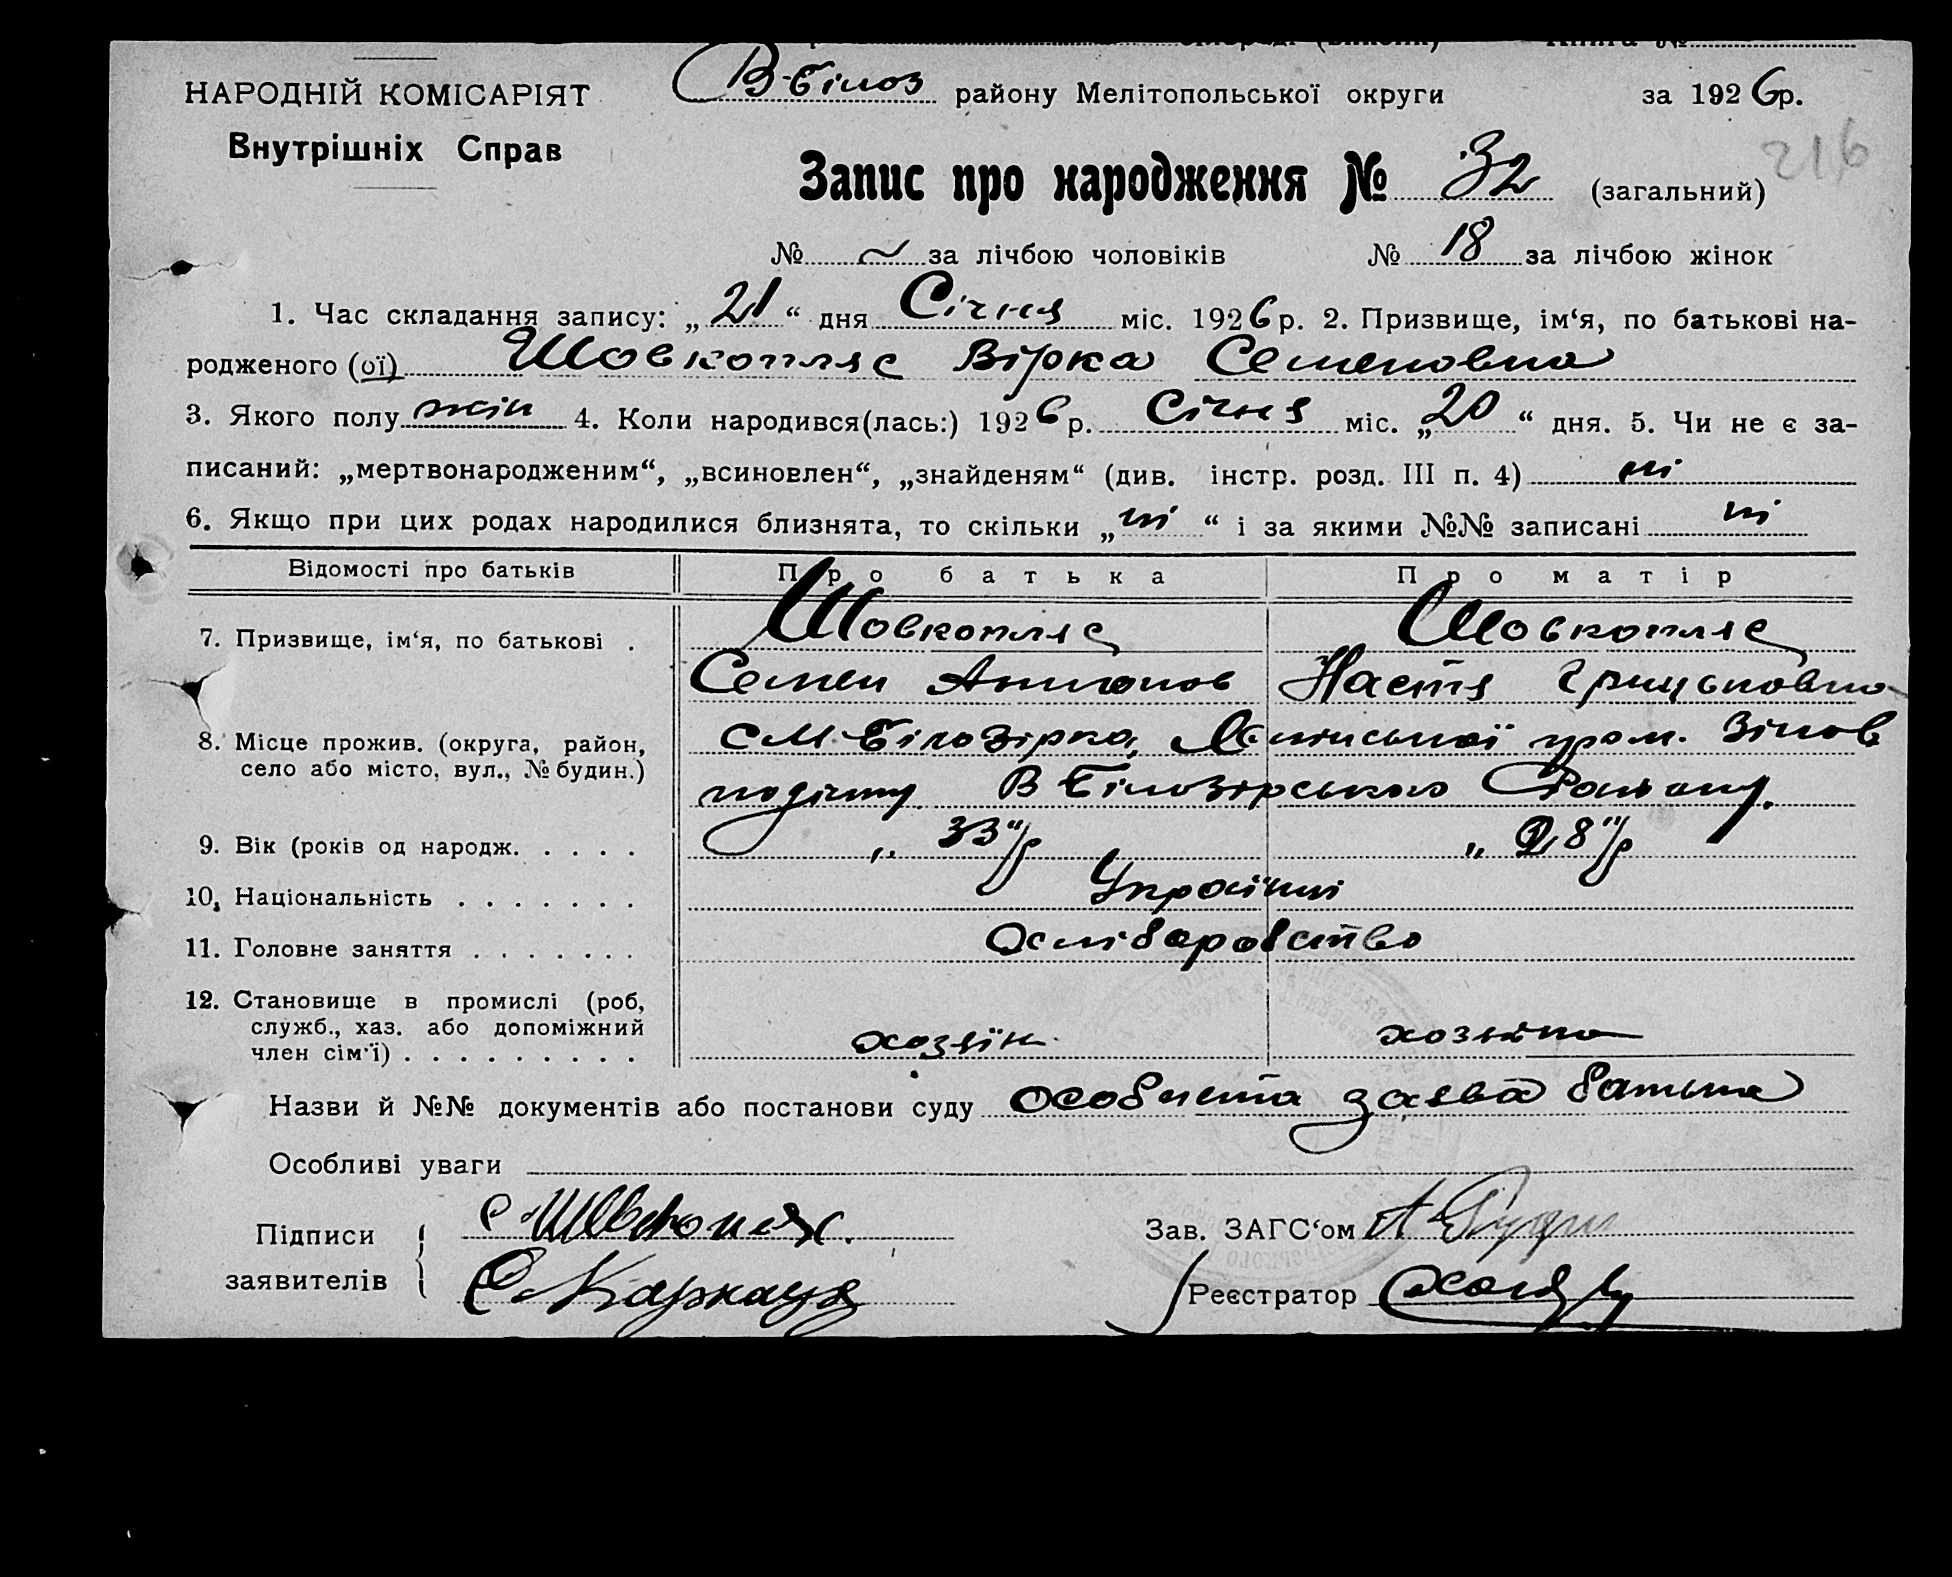 НАРОДНІЙ КОМІСАРІЯТ
Внутрішніх Справ
В-Білоз району Мелітопольської округи за 1926р.
216
Запис про народження № 32 (загальний)
№ ~ за лічбою чоловіків № 18 за лічбою жінок
1. Час складання запису: „21“ дня Січня міс. 1926р. 2. Призвище, ім‘я, по батькові на-
родженого (ої) Шовкопляс Вірка Семеновна
3. Якого полу жін 4. Коли народився(лась:) 1926р. Січня міс. „20“ дня. 5. Чи не є за-
писаний: „мертвонародженим“, „всиновлен“, „знайденям“ (див. інстр. розд. III п. 4) ні
6. Якщо при цих родах народилися близнята, то скільки „ні“ і за якими №№ записані ні
Відомості про батьків Про батька Про матір
7. Призвище, ім‘я, по батькові . Шовкопляс Шовкопляс
Семен Антонов Настя Грицьковна
8. Місце прожив. (округа, район, село або місто, вул., № будин.) с М-Білозірка, гром.
В Білозірського Району.
9. Вік (років од народж. . . . . „33“/р „28“/р
10. Національність . . . . . . . Українці
11. Головне заняття . . . . . . .
12. Становище в промислі (роб,
служб., хаз. або допоміжний
член сім‘ї) . . . . . . . . . хозяїн хозяйка
Назви й №№ документів або постанови суду особиста заява батька
Особливі уваги
Підписи заявителів С Шовкопляс.
Зав. ЗАГС‘ом
Реєстратор